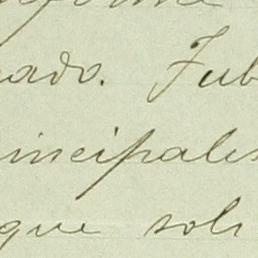 ado. Fub
incipales
que soli